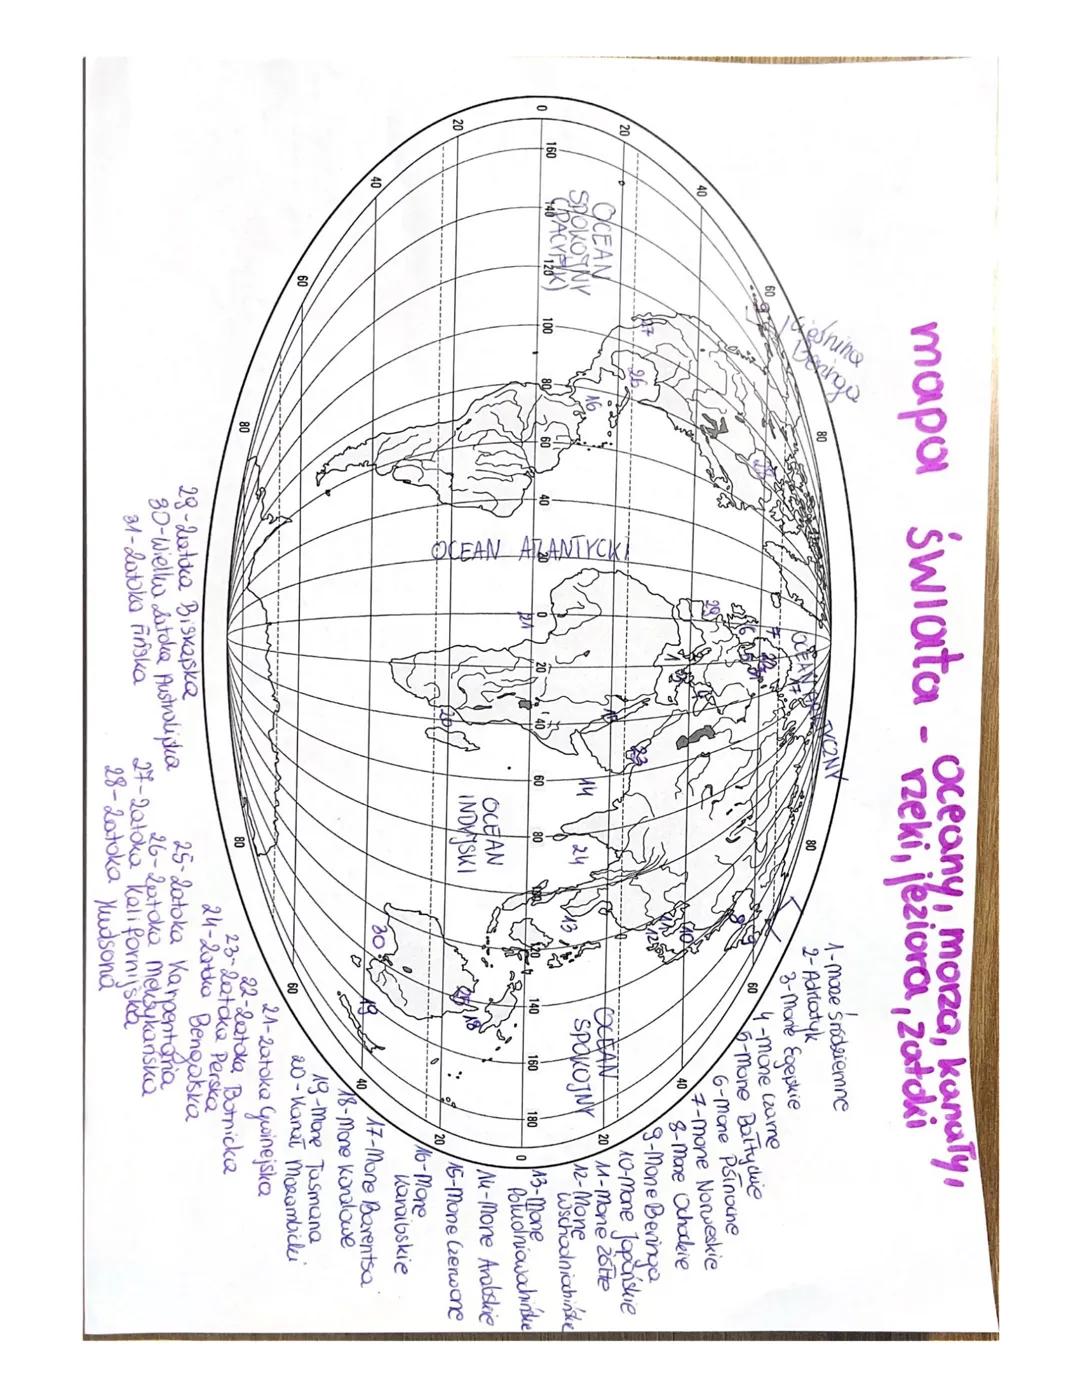 mapa świata - oceany, morza, kanały,
rzeki, jeziora, zatoki
Cieśnina
Beringa
OCEAN
SPOKOJNY
(PACYFIK)
OCEAN ATLANTYCKI
OCEAN ARKTYCZNY
OCEAN
INDYJSKI
OCEAN
SPOKOJNY
1-Morze Śródziemne
2-Adriatyk
3-Morze Egejskie
4-Morze Czarne
5-Morze Bałtyckie
6-Morze Północne
7-Morze Norweskie
8-Morze Ochockie
9-Morze Beringa
10-Morze Japońskie
11-Morze Żółte
12-Morze
Wschodniochińskie
13-Morze
Południowochińskie
14-Morze Arabskie
15-Morze Czerwone
16-Morze
Karaibskie
17-Morze Barentsa
18-Morze Koralowe
19-Morze Tasmana
20-Kanał Mozambicki
21-Zatoka Gwinejska
22-Zatoka Botnicka
23-Zatoka Perska
24-Zatoka Bengalska
25-Zatoka Karpentaria
26-Zatoka Meksykańska
27-Zatoka Kalifornijska
28-Zatoka Hudsona
29-Zatoka Biskajska
30-Wielka Zatoka Australijska
31-Zatoka Fińska